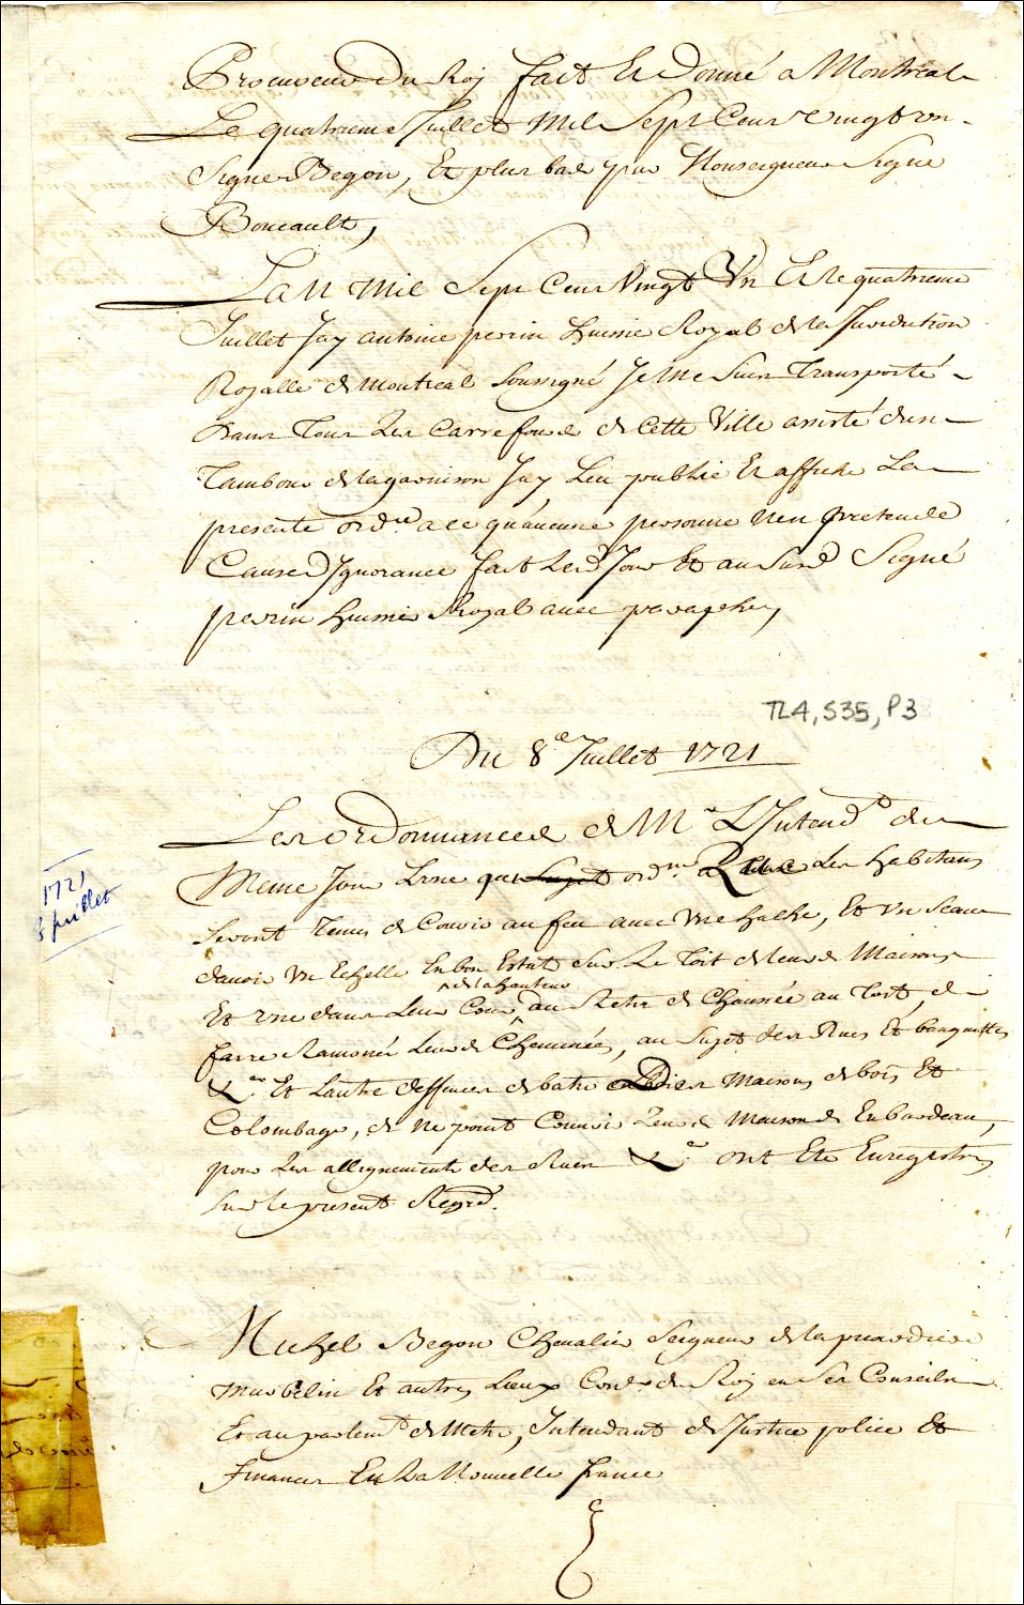 Procureur Du Roy fait Et Donné a Montreal
Le quatrieme Juillet Mil Sept Cens vingt un
Signé Begon, Et plus bas par Monseigneur Signé
Boucault,
Lan mil Sept Cens Vingt Un Et le quatrieme
Juillet Jay antoine perrin huissie Royal de la Jurisdiction
Royalle de Montreal Soussigné Je Me Suis Transporté
Dans Tous Les Carrefours de Cette Ville assisté dun
Tambour de la garnison Jay Leu publié Et affiché La
presente ordce a ce quaucune personne nen pretende
Cause d Ignorance fait Led Jour Et an Susd Signé
perrin huissier Royal avec paraphe,
TL4, S35, P3
Du 8e Juillet 1721
Les ordonnances de Mr L'Intendt du
Meme Jour Lune que ordre a les habitans
Seront Tenus de Courir au feu avec une hache, Et un Seau
davoir un Echelle En bon Estat Sur Le Toit de leurs Maisons
de la hauteur
Et une dans leur Cour, du Rets de Chaussée au Toit, de
faire Ramoner leurs Cheminées, au Sujet des Rues Et banquettes
&ca Et Lautre deffenses de batir Des Maisons de bois Et
Colombage, de ne point Couvrir Leurs Maisons En bardeau,
pour Les allignements des Rues &ca ont Eté Enregistrés
Sur le present Regre.
1721
8 juillet
Michel Begon Chevalier Seigneur de la picardiere
Murbelin Et autres Lieux Coner du Roy en Ses Conseils
Et au parlemt de Metz, Intendant de Justice police Et
Finances En La Nouvelle france